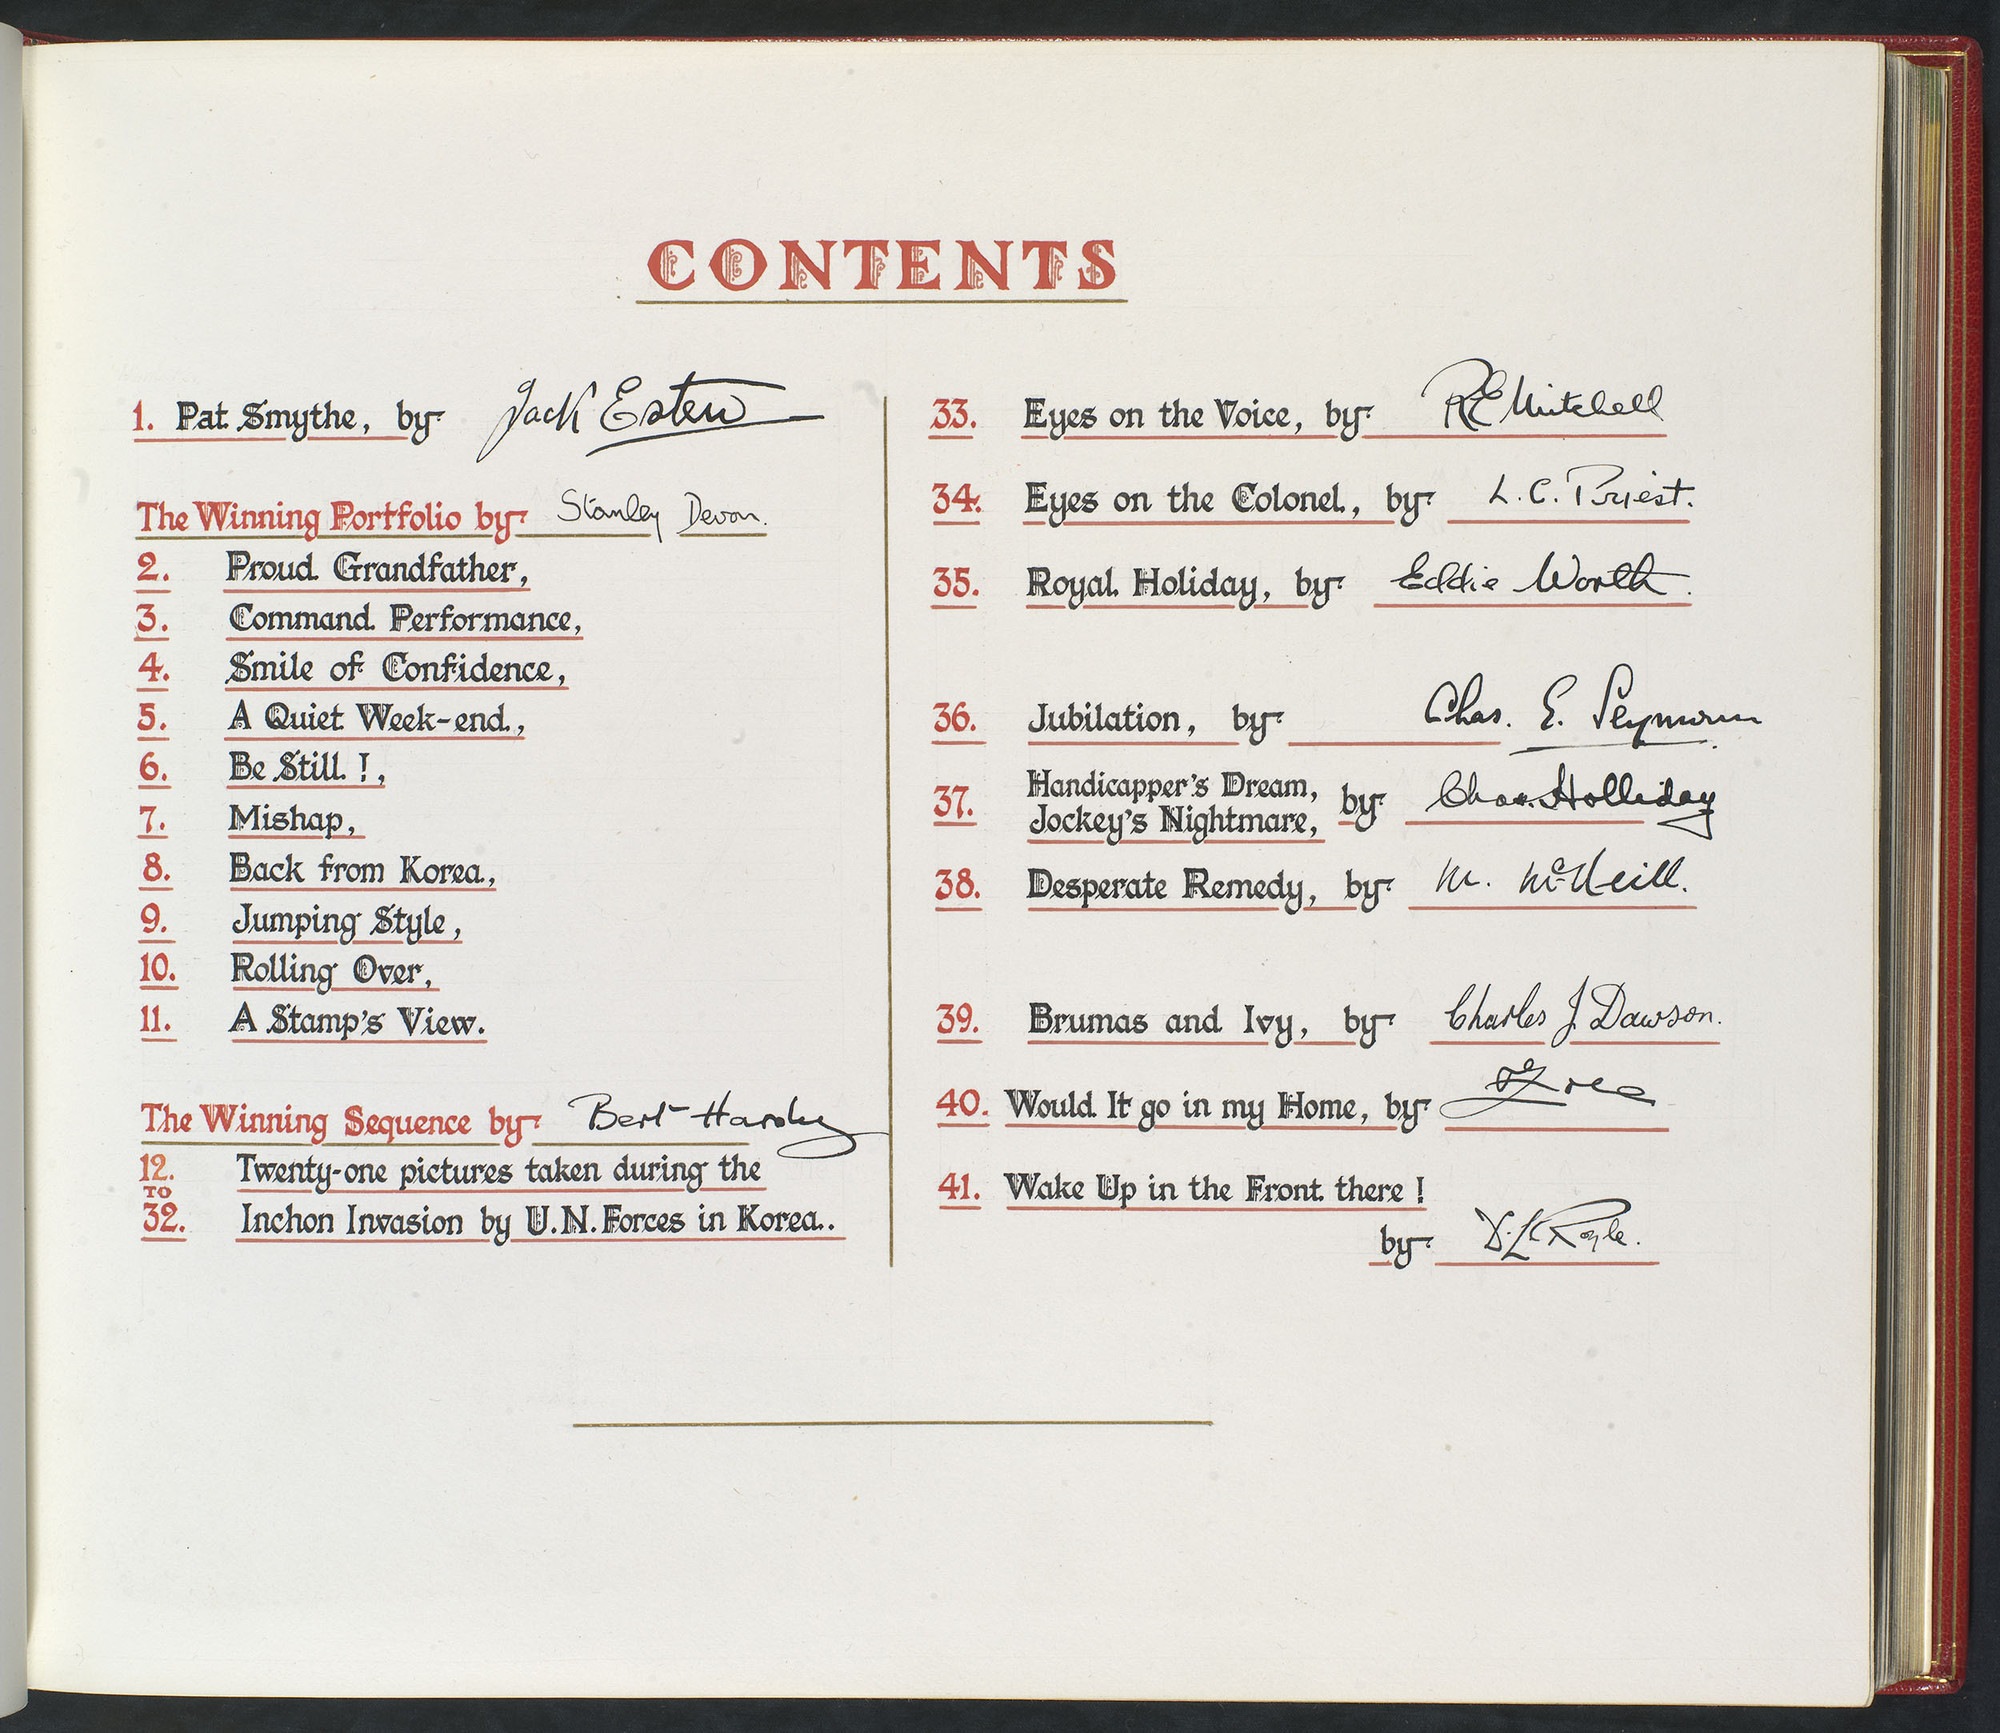 CONTENTS
1. Pat Smythe, by Jack Esten
The Winning Portfolio by Stanley Devon.
2. Proud Grandfather,
3. Command Performance,
4. Smile of Confidence,
5. A Quiet Week-end,
6. Be Still!,
7. Mishap,
8. Back from Korea,
9. Jumping Style,
10. Rolling Over,
11. A Stamp's View.
The Winning Sequence by Bert Hardy
12. Twenty-one pictures taken during the
TO
32. Inchon Invasion by U.N. Forces in Korea..
33. Eyes on the Voice, by R E Mitchell
34. Eyes on the Colonel, by L. C. Priest.
35. Royal Holiday, by Eddie Worth.
36. Jubilation, by Chas. E. Seymour
37. Handicapper's Dream,
Jockey's Nightmare, by Chas. Holliday
38. Desperate Remedy, by M. McNeill.
39. Brumas and Ivy, by Charles J Dawson.
40. Would It go in my Home, by
41. Wake Up in the Front there!
by